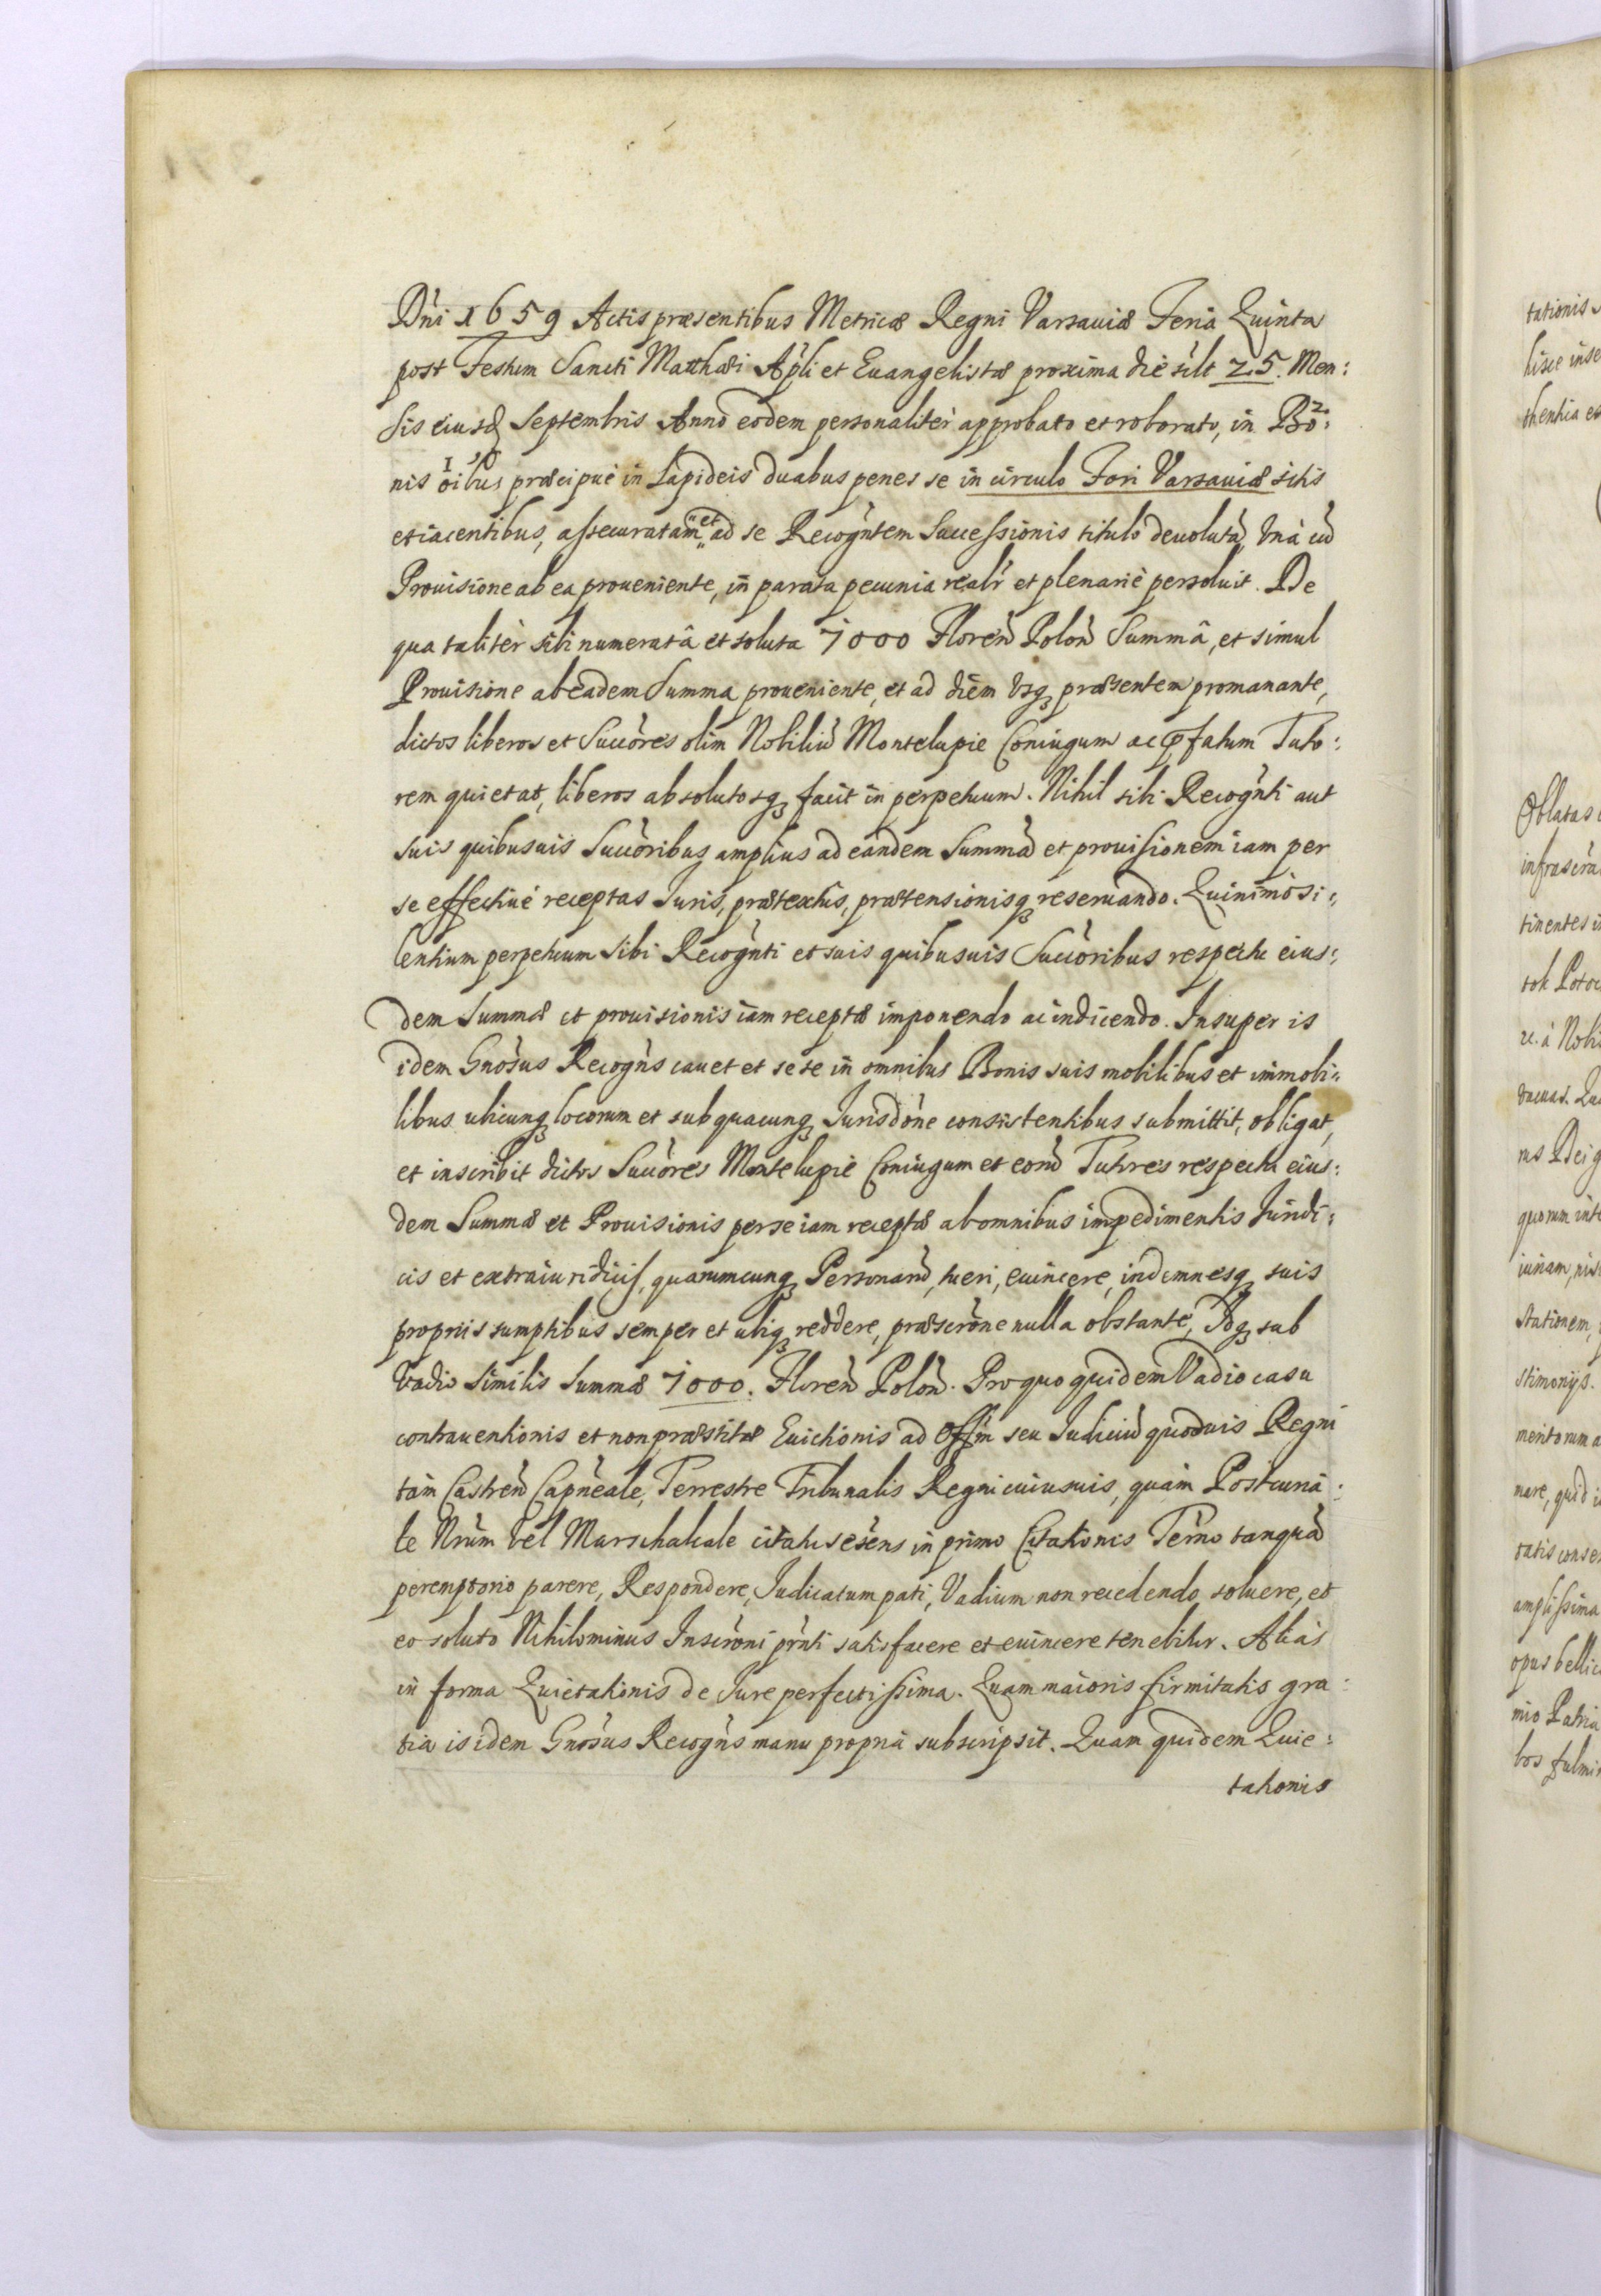 Dn̄i 1659 Actis præsentibus Metricæ Regni Varsauiæ Feria Quinta
post Festum Sancti Matthæi Ap̄li et Euangelistæ proxima die silt 25. Men:
sis eiusd. Septembris Anno eodem personalitèr approbato et roborato, in Bo:
nis oībus præcipuè in Lapideis duabus penes se in circulo Fori Varsauiæ sitis
et iacentibus, assecuratam et ad se Recogn̄tem Successionis titulo deuolutā, Vnà cū
Prouisione ab ea proueniente, in parata pecunia realr̄ et plenariè persoluit. De
qua talitèr sibi numeratâ et soluta 7000 Floren̄ Polon̄ Summâ, et simul
Prouisione ab eadem Summa proueniente, et ad diem vsq₃ præsentem promanante,
dictos liberos et Succōres olim Nobiliū Montelupie Coniugum ac p̄fatum Tuto:
rem quietat, liberos absolutosq₃ facit in perpetuum. Nihil sibi Recogn̄ti aut
suis quibusuis Succōribus amplius ad eandem Summā et prouisionem iam per
se effectiuè receptas Iuris, prætextus, prætensionisq₃ reseruando. Quinimò si:
lentium perpetuum sibi Recogn̄ti et suis quibusuis Succōribus respectu eius:
dem Summæ et prouisionis iam receptæ imponendo ac indicendo. Insuper is
idem Gnōsus Recogn̄s cauet et sese in omnibus Bonis suis mobilibus et immobi:
libus vbicunq₃ locorum et sub quacunq₃ Jurisdōne consistentibus submittit, obligat,
et inscribit dictos Succōres Montelupie Coniugum et eorū Tutores respectu eius:
dem Summæ et Prouisionis per se iam receptæ ab omnibus impedimentis Iuridi:
cis et extraiuridicis, quarumcunq₃ Personarū, tueri, euincere, indemnesq₃ suis
proprijs sumptibus semper et vbiq₃ reddere, præscrōne nulla obstante, Idq₃ sub
Vadio similis Summæ 7000. Floren̄ Polon̄. Pro quo quidem Vadio casu
contrauentionis et non præstitæ Euictionis ad Offm̄ seu Iudiciū quoduis Regni
tàm Castren̄ Capn̄eale, Terrestre Tribunalis Regni cuiusuis, quàm Postcuria:
le Nr̄um vel Marschalcale citatus esēns in primo Citationis Term̄o tanquā
peremptorio parere, Respondere, Iudicatum pati, Vadium non recedendo soluere, et
eo soluto Nihilominus Inscrōni prn̄ti satisfacere et euincere tenebitur. Aliàs
in forma Quietationis de Iure perfectissima. Quam maioris firmitatis gra:
tia is idem Gnōsus Recogn̄s manu propria subscripsit. Quam quidem Quie:
tationis